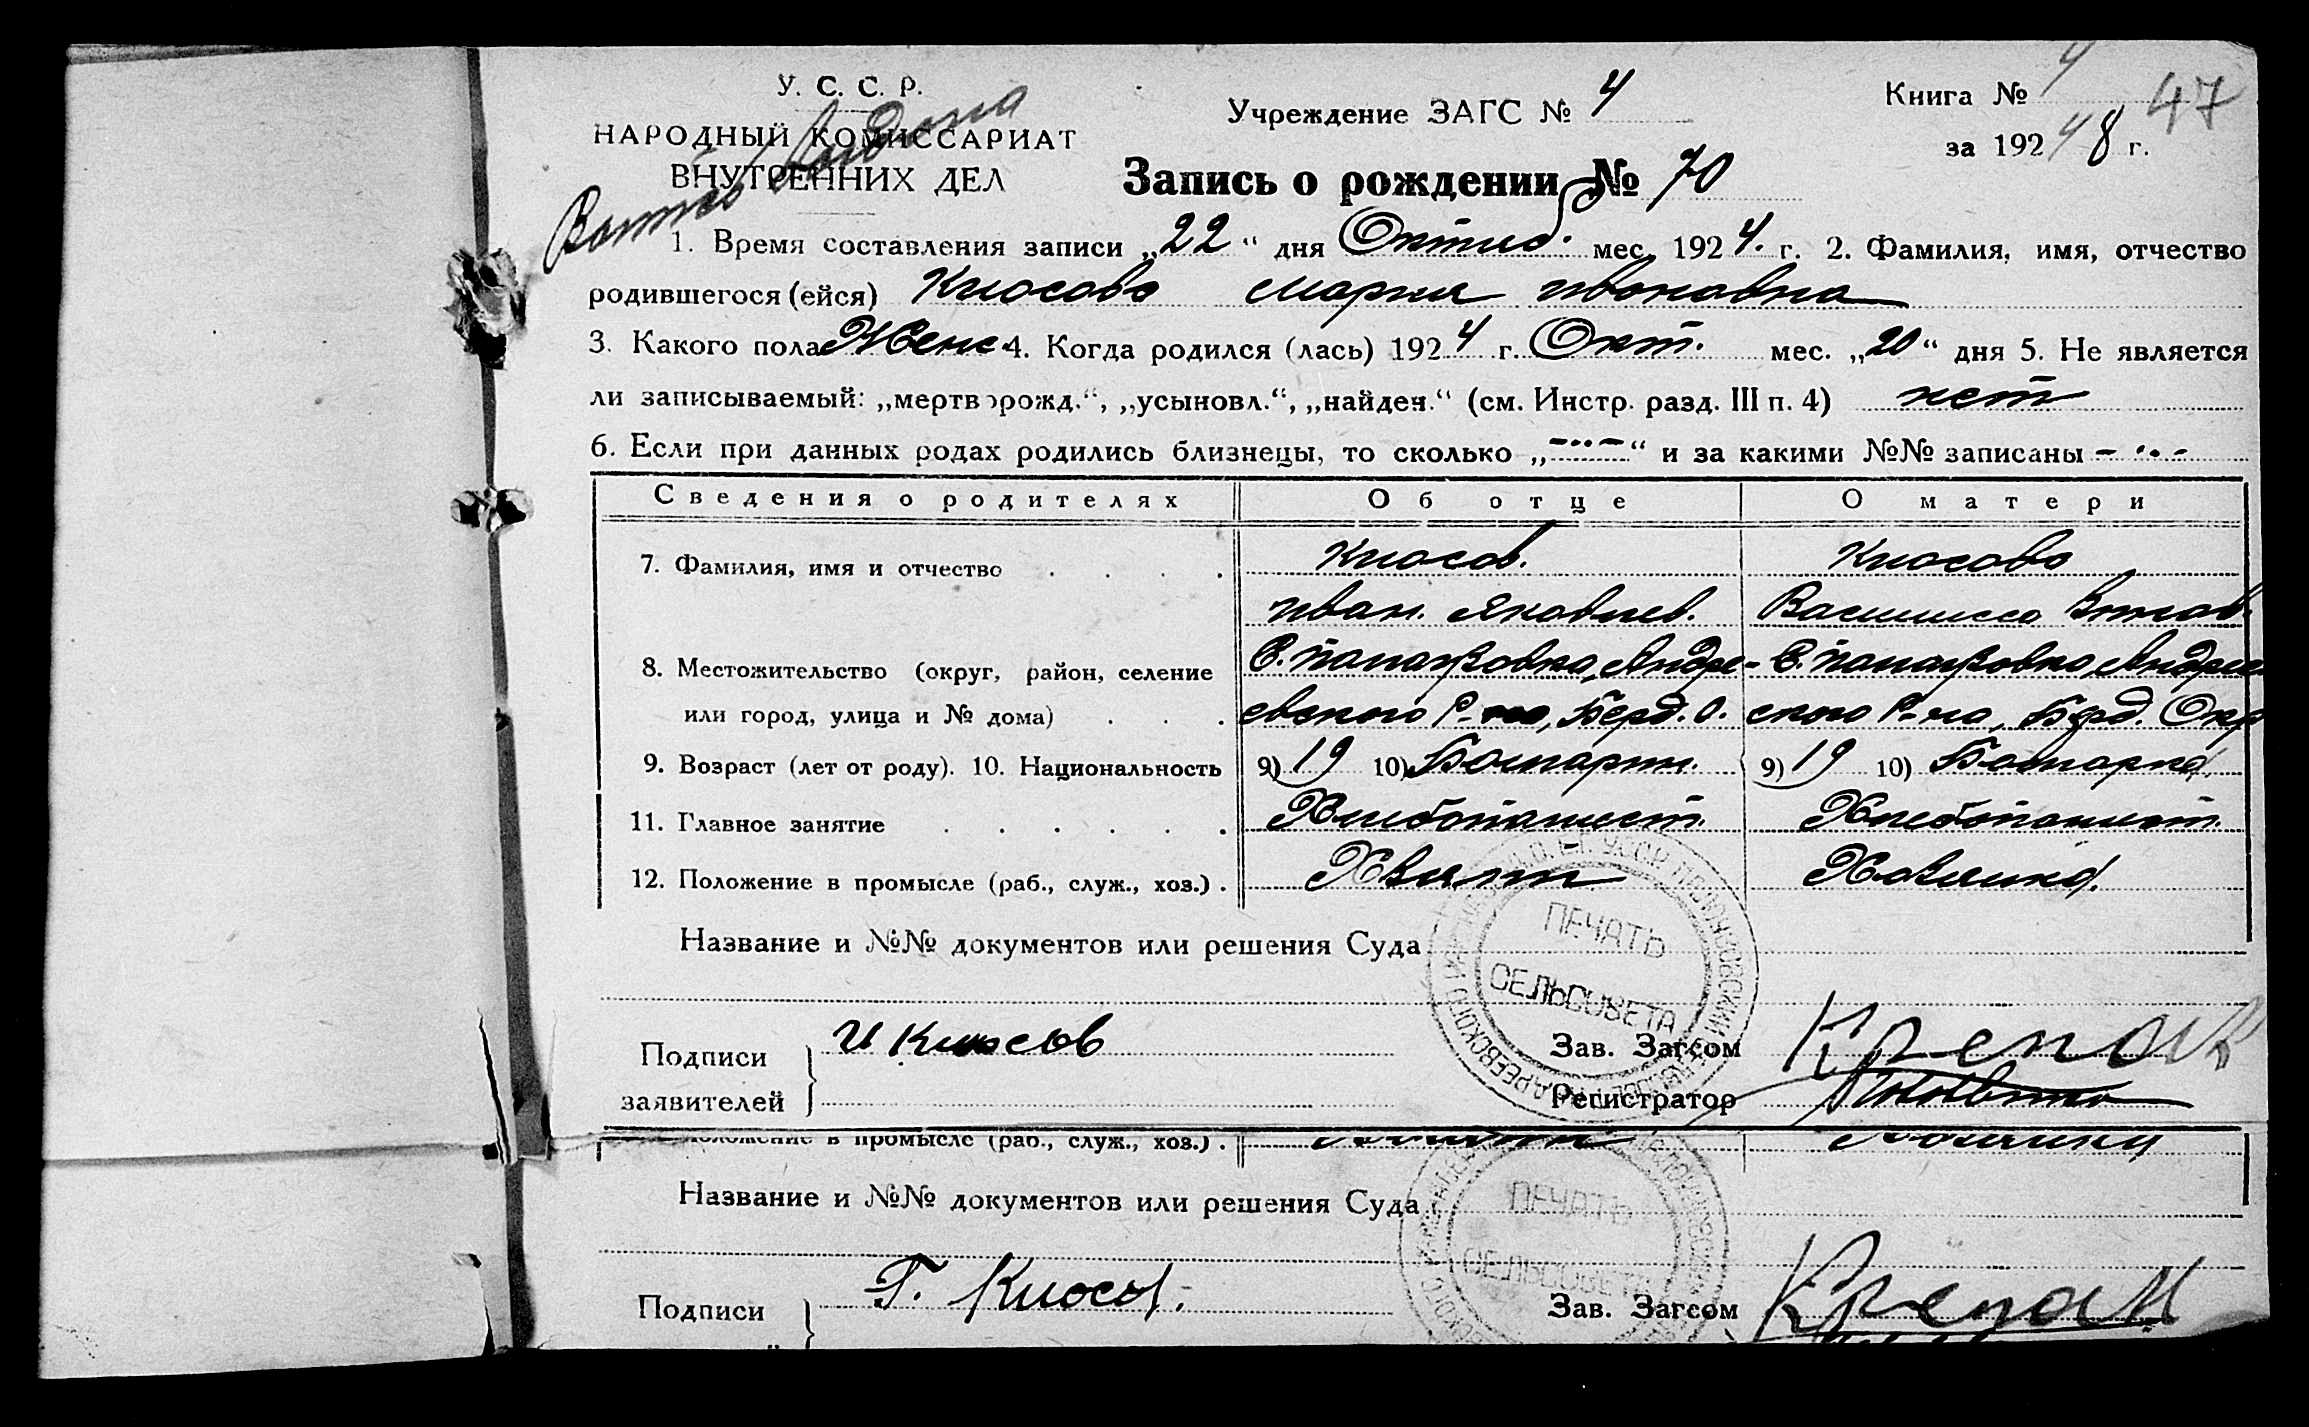 У. С. С. Р.
НАРОДНЫЙ КОМИССАРИАТ
ВНУТРЕННИХ ДЕЛ
Учреждение ЗАГС № 4
Книга № 4
47
за 192 г.
Запись о рождении № 70
1. Время составления записи „22“ дня Октяб. мес. 1924. г. 2. Фамилия, имя, отчество
родившегося (ейся) Кюсова Мария Ивановна
3. Какого пола Женс 4. Когда родился (лась) 1924 г. Окт. мес. „20“ дня 5. Не является
ли записываемый: „мертворожд.“, „усыновл.“, „найден.“ (см. Инстр. разд. III п. 4) нет
6. Если при данных родах родились близнецы, то сколько „-“ и за какими №№ записаны -
Сведения о родителях Об отце О матери
7. Фамилия, имя и отчество Кюсов. Кюсова
Иван. Яковлев. Василиса
8. Местожительство (округ, район, селение С. Палаузовка, Андре- С. Палаузовка, Андреев
или город, улица и № дома) евского Р-на, Берд. О. ского Р-на, Берд. Окр
9. Возраст (лет от роду). 10. Национальность 9) 19 10) Болгарин. 9) 19 10) Болгарка
11. Главное занятие Хлебопашест. Хлебопашест.
12. Положение в промысле (раб., служ., хоз.) . Хазяин Хозяика.
Название и №№ документов или решения Суда
ПЕЧАТЬ
СЕЛЬСОВЕТА
Подписи
заявителей
И Кюсов
Зав. Загсом
Регистратор
положение в промысле (раб., служ., хоз.) .
Название и №№ документов или решения Суда
ПЕЧАТЬ
СЕЛЬСОВЕТА
Подписи Г. Кюсов. Зав. Загсом